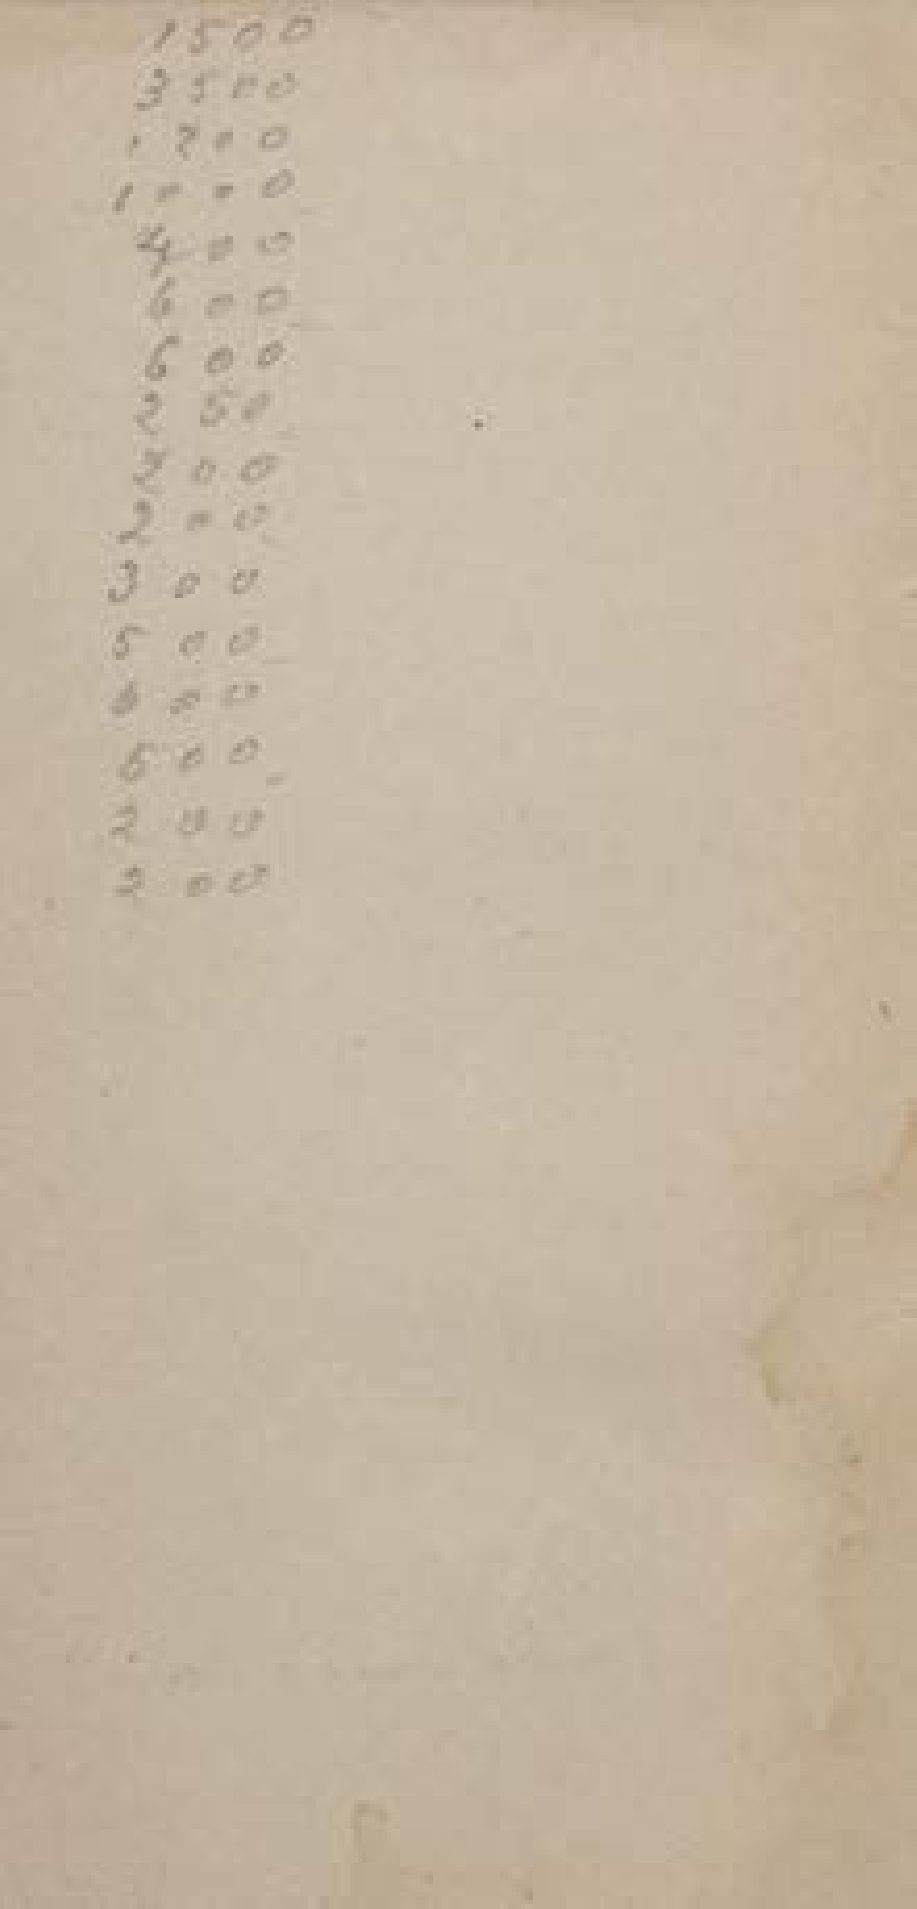 1500
3500
1200
1000
400
600
600
250
200
200
300
500
600
500
200
200